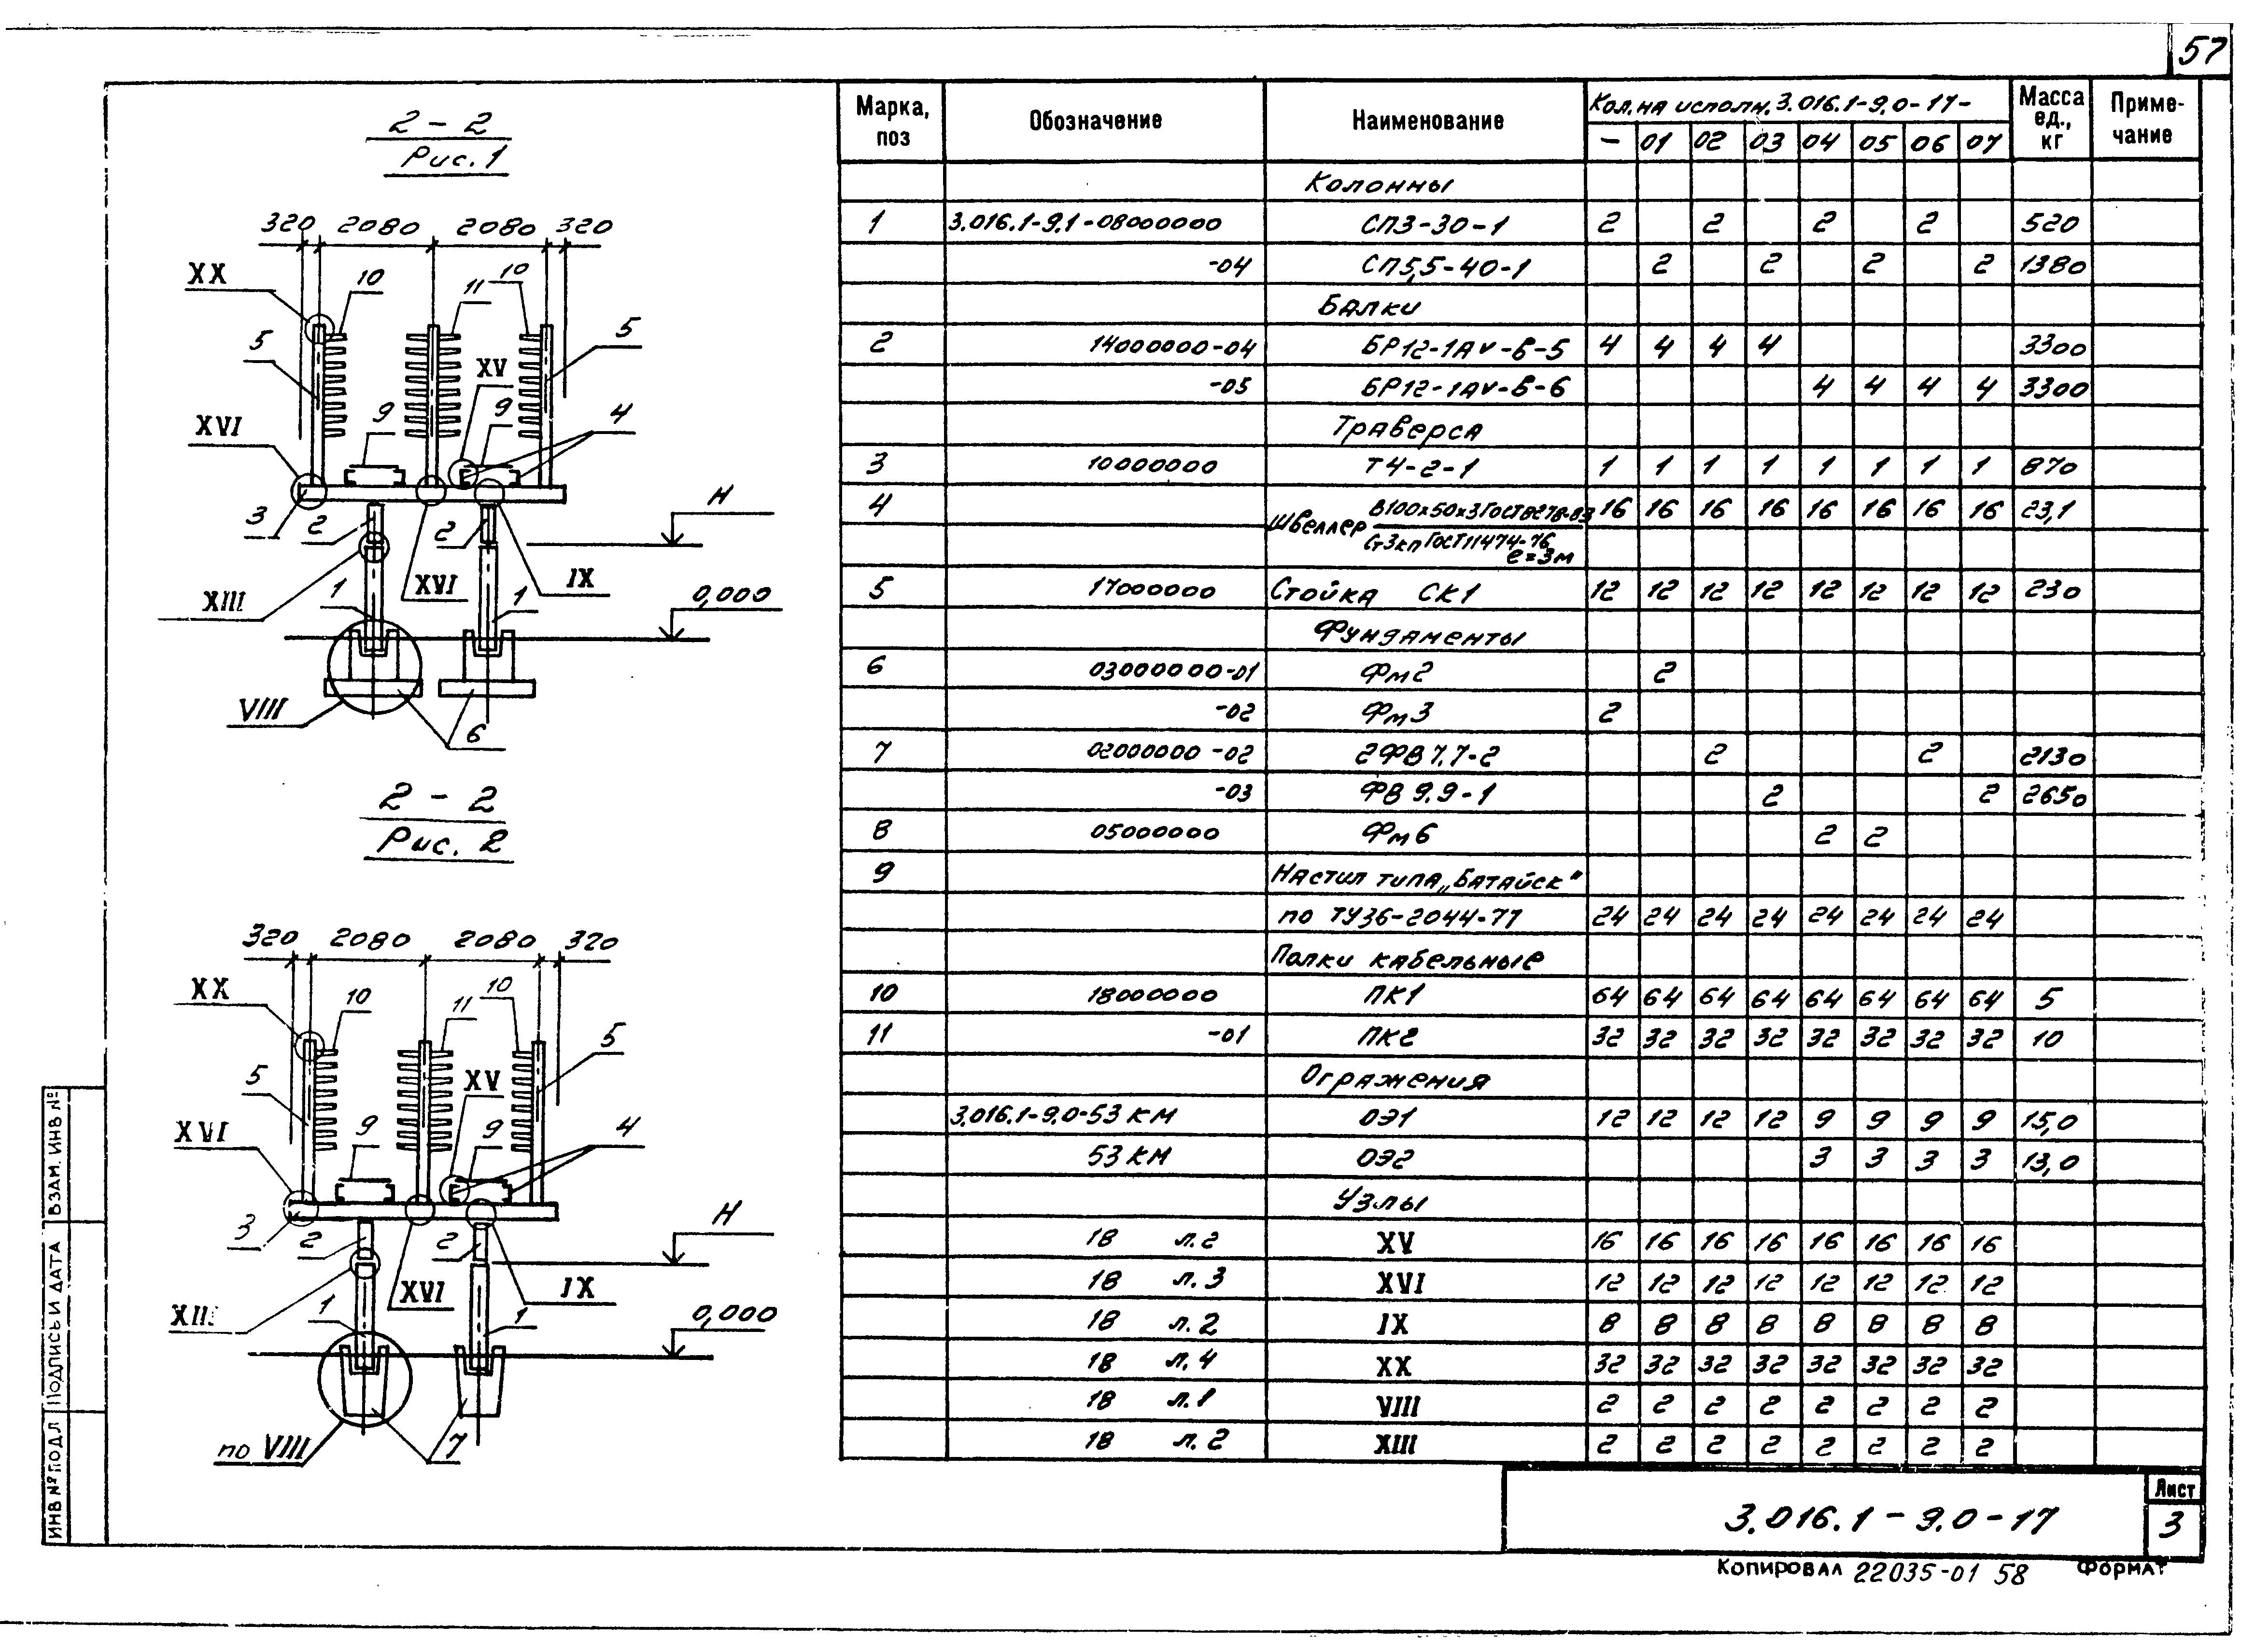 57
2 - 2
Рис. 1
320 2080 2080 320
XX 10 11 10
5 5
XV
9 9 4
XVI
3 2 2 H
XIII 1 XVI 1 IX 0,000
VIII
6
2 - 2
Рис. 2
320 2080 2080 320
XX 10 11 10
5 5
XV
9 9 4
XVI
3 2 2 H
XIII 1 XVI 1 IX 0,000
по VIII 7
Марка, поз Обозначение Наименование Кол. на исполн. 3.016.1-9.0-17- Масса ед., кг Приме-чание
— 01 02 03 04 05 06 07
Колонны
1 3.016.1-9.1-08000000 СП3-30-1 2 2 2 2 520
-04 СП5,5-40-1 2 2 2 2 1380
Балки
2 14000000-04 БР12-1АV-в-5 4 4 4 4 3300
-05 БР12-1АV-в-6 4 4 4 4 3300
Траверса
3 10000000 Т4-2-1 1 1 1 1 1 1 1 1 870
4 Швеллер В100х50х3 ГОСТ 8278-83 16 16 16 16 16 16 16 16 23,1
Ст3кп ГОСТ 11474-76
ℓ=3м
5 17000000 Стойка СК1 12 12 12 12 12 12 12 12 230
Фундаменты
6 03000000-01 Фм2 2
-02 Фм3 2
7 02000000-02 2ФВ7.7-2 2 2 2130
-03 ФВ9.9-1 2 2 2650
8 05000000 Фм6 2 2
9 Настил типа „Батайск"
по ТУ36-2044-77 24 24 24 24 24 24 24 24
Полки кабельные
10 18000000 ПК1 64 64 64 64 64 64 64 64 5
11 -01 ПК2 32 32 32 32 32 32 32 32 10
Огражения
3.016.1-9.0-53 КМ ОЭ1 12 12 12 12 9 9 9 9 15,0
53 КМ ОЭ2 3 3 3 3 13,0
Узлы
18 л.2 XV 16 16 16 16 16 16 16 16
18 л.3 XVI 12 12 12 12 12 12 12 12
18 л.2 IX 8 8 8 8 8 8 8 8
18 л.4 XX 32 32 32 32 32 32 32 32
18 л.1 VIII 2 2 2 2 2 2 2 2
18 л.2 XIII 2 2 2 2 2 2 2 2
3.016.1 - 9.0 - 17
Лист
3
Копировал 22035-01 58 Формат
ИНВ № ПОДЛ ПОДПИСЬ И ДАТА ВЗАМ. ИНВ №